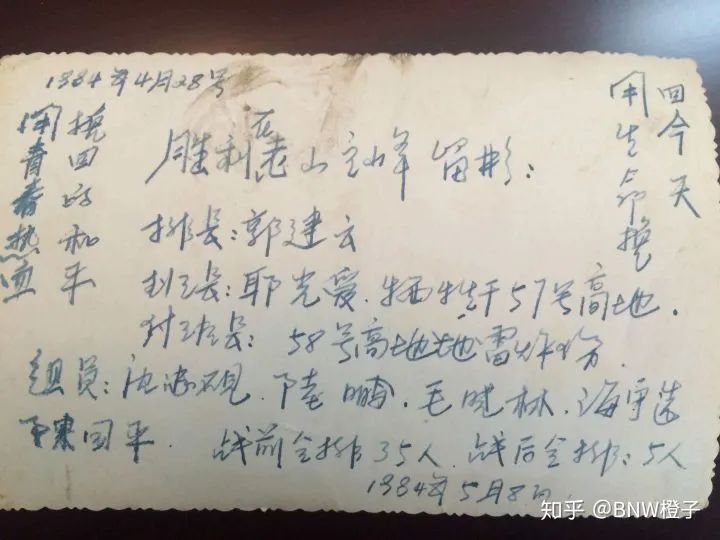 1984年4月28号
用青春热血
换回的和平
用生命换
回今天
胜利在老山主峰留影:
排长:郭建云
班长:耶光爱.牺牲于57号高地.
付班长: 58号高地地雷炸伤
组员: 陆鹏.毛晓林.海
国平. 战前全排35人.战后全排:5人
1984年5月8日
知乎 @BNW橙子